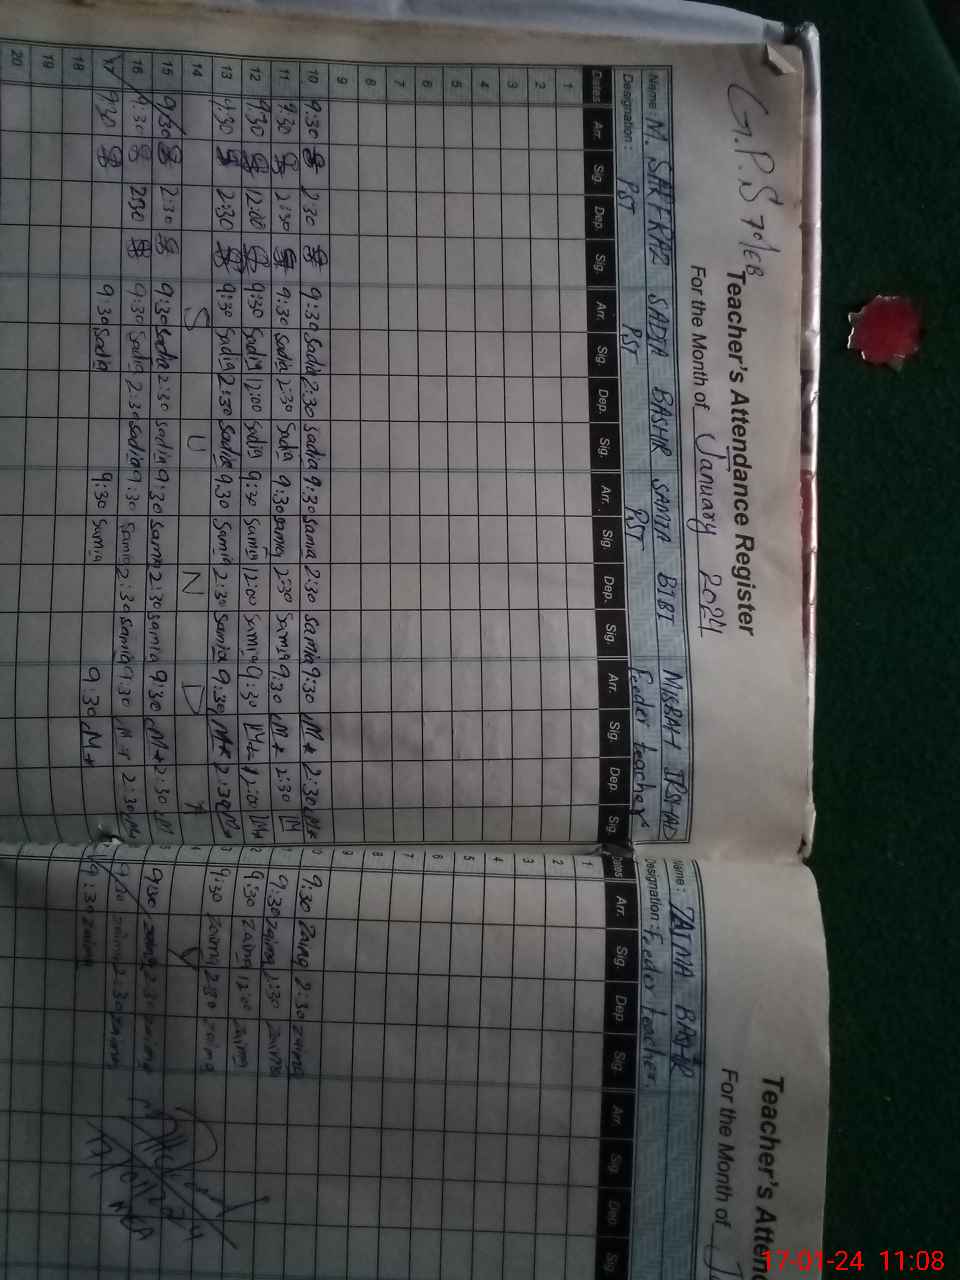 G.P.S 70/EB
Teacher's Attendance Register
For the Month of January 2024
Name: M. SARFRAZ SADIA BASHIR SAMIA BIBI MISBAH IRSHAD
Designation: PST PST PST Feeder teacher
Dates Arr. Sig. Dep. Sig. Arr. Sig. Dep. Sig. Arr. Sig. Dep. Sig. Arr. Sig. Dep. Sig.
1
2
3
4
5
6
7
8
9
10 9:30 2:30 9:30 Sadia 2:30 Sadia 9:30 Samia 2:30 Samia 9:30 2:30
11 9:30 2:30 9:30 Sadia 2:30 Sadia 9:30 Samia 2:30 Samia 9:30 2:30
12 9:30 12:00 9:30 Sadia 12:00 Sadia 9:30 Samia 12:00 Samia 9:30 12:00
13 9:30 2:30 9:30 Sadia 2:30 Sadia 9:30 Samia 2:30 Samia 9:30 2:30
14 S U N D A
15 9:30 2:30 9:30 Sadia 2:30 Sadia 9:30 Samia 2:30 Samia 9:30 2:30
16 9:30 2:30 9:30 Sadia 2:30 Sadia 9:30 Samia 2:30 Samia 9:30 2:30
17 9:30 9:30 Sadia 9:30 Samia 9:30
18
19
20
Teacher's Atten
For the Month of J
Name: ZAIMA BASHIR
Designation: Feeder teacher.
Dates Arr. Sig. Dep. Sig. Arr. Sig. Dep. Sig
1
2
3
4
5
6
7
8
9
10 9:30 Zaima 2:30 Zaima
9:30 Zaima 2:30 Zaima
2 9:30 Zaima 12:00 Zaima
3 9:30 Zaima 2:30 Zaima
4 Y
5 9:30 Zaima 2:30 Zaima
9:30 Zaima 2:30 Zaima
9:30 Zaima
MEA
17-01-24 11:08